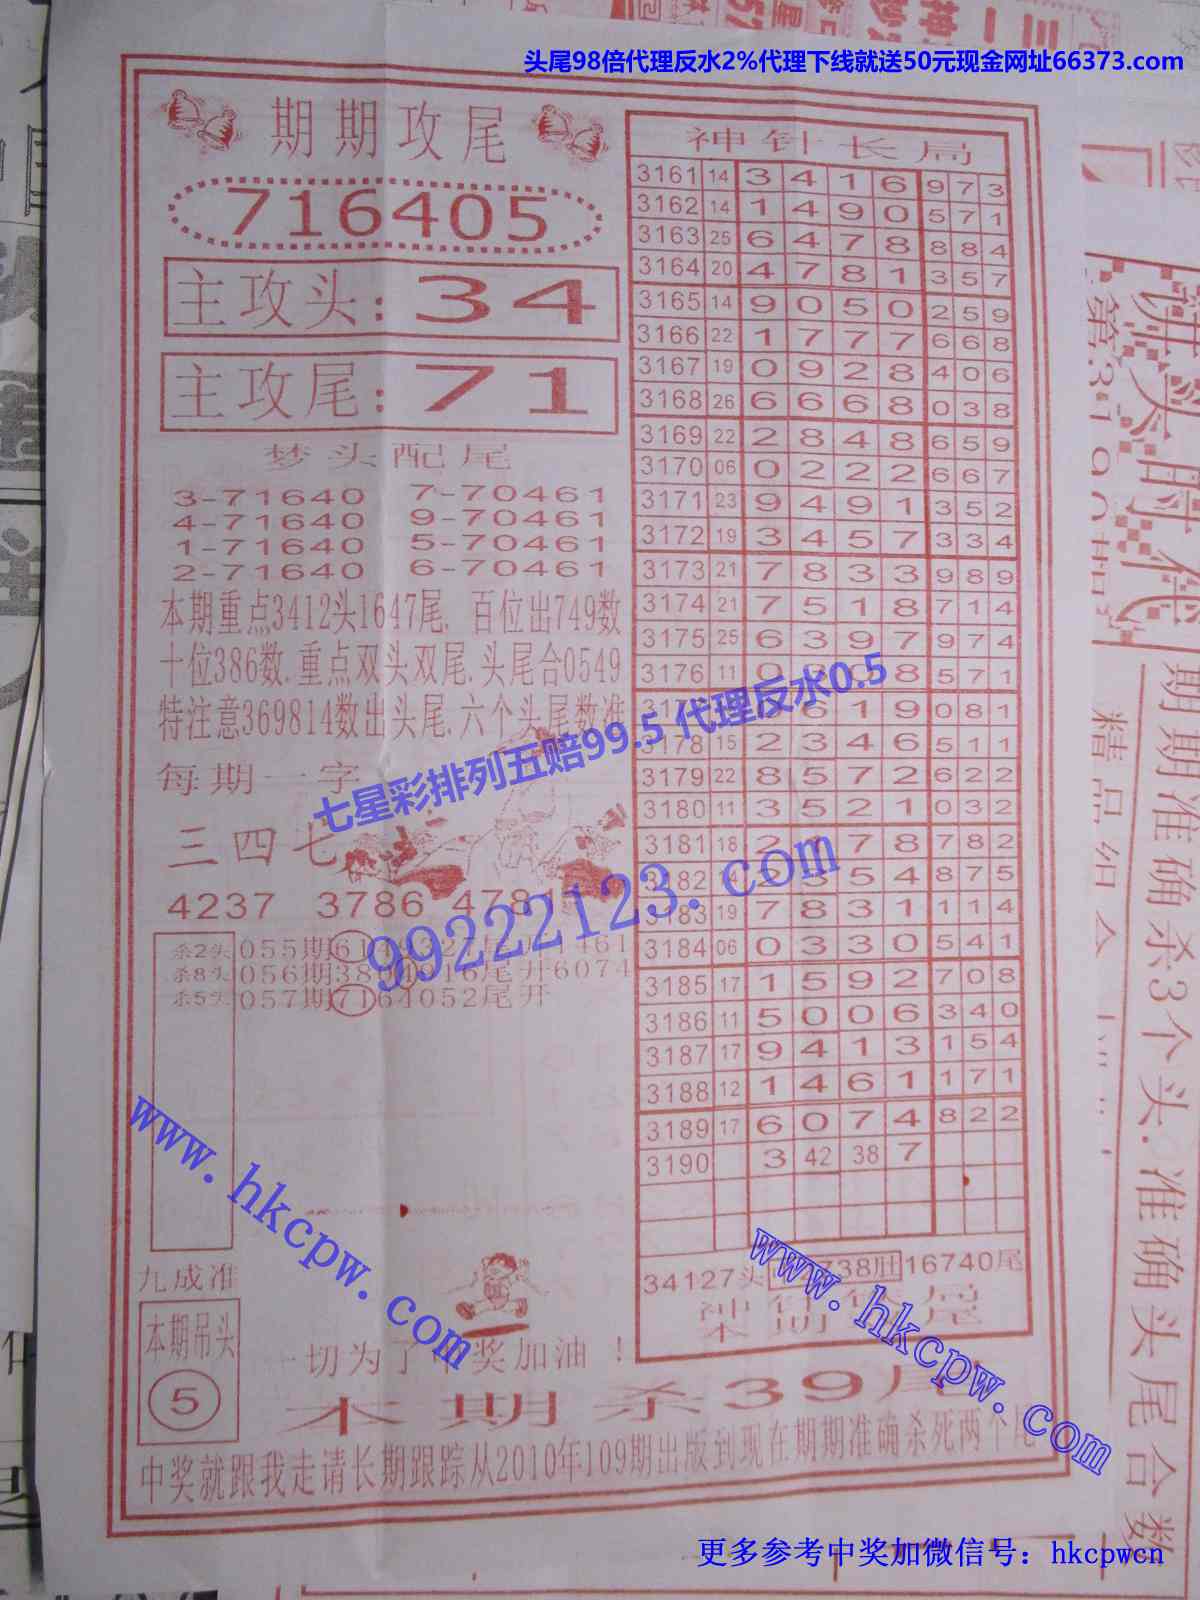 头尾98倍代理反水2%代理下线就送50元现金网址66373.com
期期攻尾
716405
主攻头:34
主攻尾:71
梦头配尾
3-71640 7-70461
4-71640 9-70461
1-71640 5-70461
2-71640 6-70461
本期重点3412头1647尾. 百位出749数
十位386数.重点双头双尾.头尾合0549
特注意369814数出头尾.六个头尾数准
每期一字
三四七
4237 3786 478
杀2头 055期
杀8头 056期 尾开6074
杀5头 057期7164052尾开
九成准
本期吊头
5
一切为了中奖加油！
本期杀39尾
中奖就跟我走请长期跟踪从2010年109期出版到现在期期准确杀死两个尾
神针长局
3161 14 3 4 1 6 9 7 3
3162 14 1 4 9 0 5 7 1
3163 25 6 4 7 8 8 8 4
3164 20 4 7 8 1 3 5 7
3165 14 9 0 5 0 2 5 9
3166 22 1 7 7 7 6 6 8
3167 19 0 9 2 8 4 0 6
3168 26 6 6 6 8 0 3 8
3169 22 2 8 4 8 6 5 9
3170 06 0 2 2 2 6 6 7
3171 23 9 4 9 1 3 5 2
3172 19 3 4 5 7 3 3 4
3173 21 7 8 3 3 9 8 9
3174 21 7 5 1 8 7 1 4
3175 25 6 3 9 7 9 7 4
3176 11 0 8 5 7 1
6 1 9 0 8 1
3178 15 2 3 4 6 5 1 1
3179 22 8 5 7 2 6 2 2
3180 11 3 5 2 1 0 3 2
3181 18 2 1 7 8 7 8 2
3182 14 2 3 5 4 8 7 5
3183 19 7 8 3 1 1 1 4
3184 06 0 3 3 0 5 4 1
3185 17 1 5 9 2 7 0 8
3186 11 5 0 0 6 3 4 0
3187 17 9 4 1 3 1 5 4
3188 12 1 4 6 1 1 7 1
3189 17 6 0 7 4 8 2 2
3190 3 42 38 7
34127头 738肚 16740尾
期期准确杀3个头.准确头尾合数
精品组合
七星彩排列五赔99.5 代理反水0.5
99222123.com
www.hkcpw.com
www.hkcpw.com
更多参考中奖加微信号：hkcpwcn